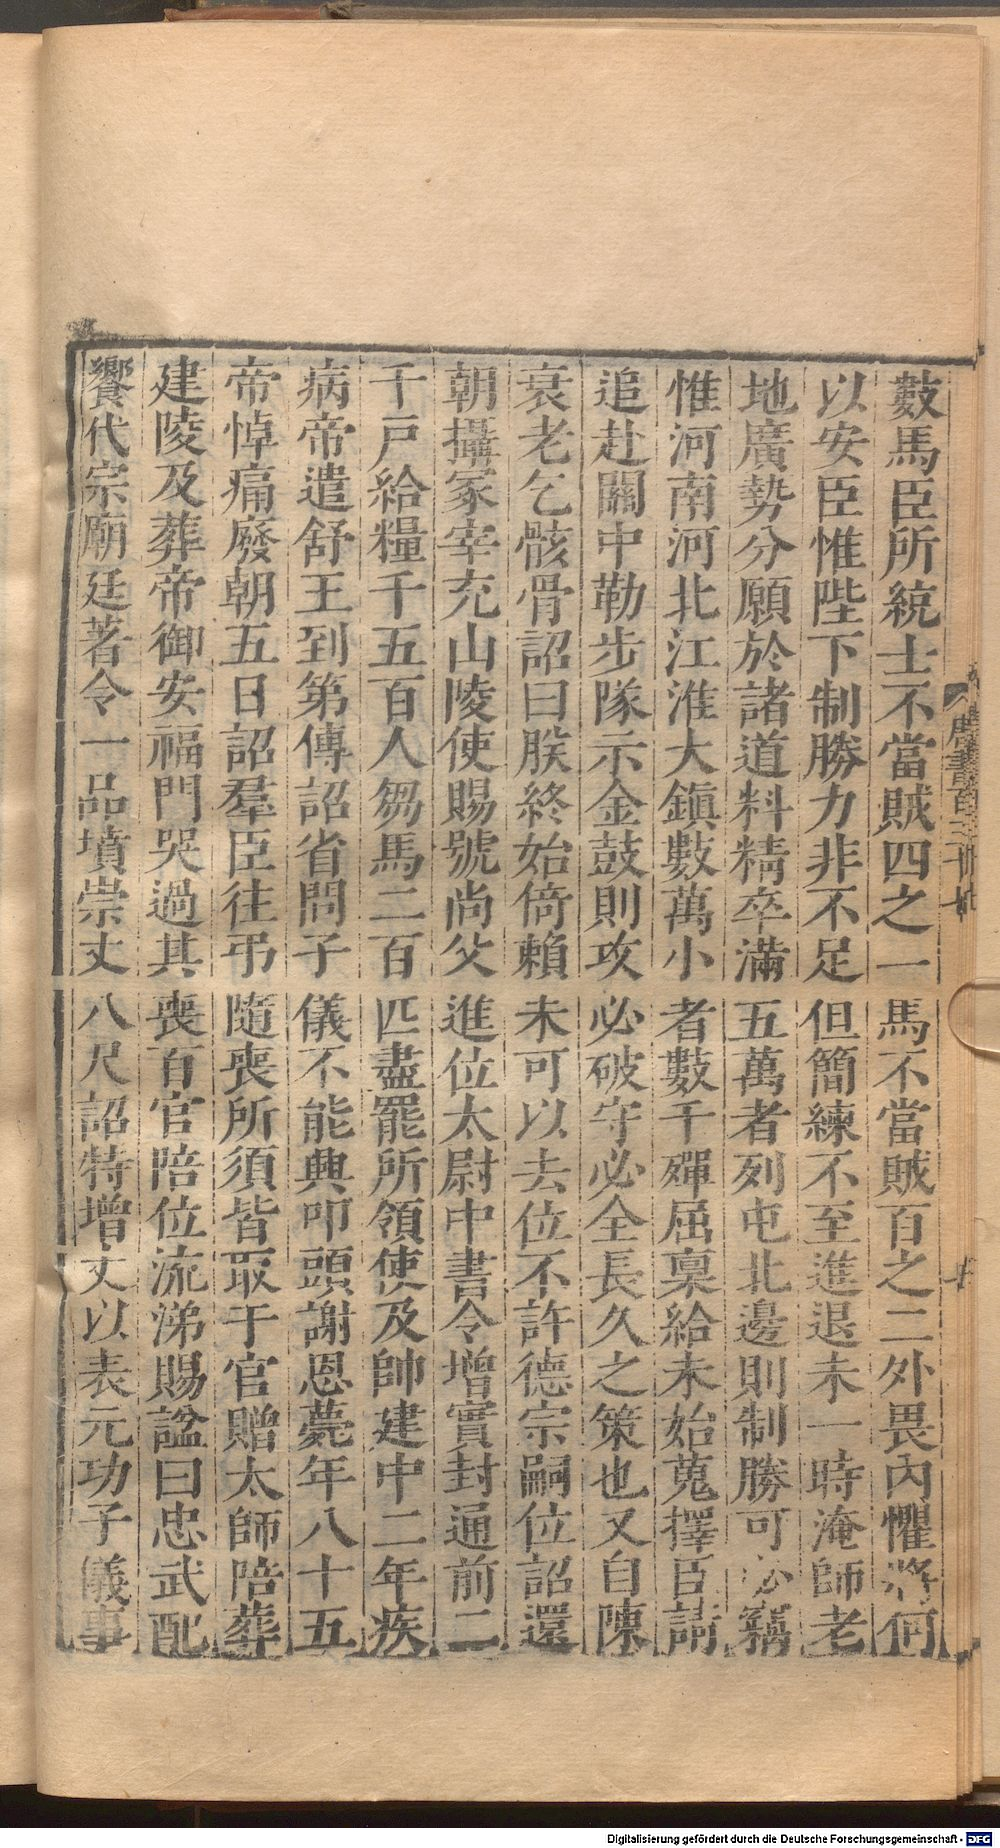 數馬臣所統士不當賊四之一馬不當賊百之二外畏內懼將何
以安臣惟陛下制勝力非不足但簡練不至進退未一時淹師老
地廣勢分願於諸道料精卒滿五萬者列屯北邊則制勝可必竊
惟河南河北江淮大鎮數萬小者數千殫屈稟給未始蒐擇臣請
追赴關中勒步隊示金鼓則攻必破守必全長久之策也又自陳
衰老乞骸骨詔曰朕終始倚賴未可以去位不許德宗嗣位詔還
朝攝冢宰充山陵使賜號尚父進位太尉中書令增實封通前二
千戶給糧千五百人芻馬二百匹盡罷所領使及帥建中二年疾
病帝遣舒王到第傳詔省問子儀不能興叩頭謝恩薨年八十五
帝悼痛廢朝五日詔羣臣往弔隨喪所須皆取于官贈太師陪葬
建陵及葬帝御安福門哭過其喪百官陪位流涕賜諡曰忠武配
饗代宗廟廷著令一品墳崇丈八尺詔特增丈以表元功子儀事
Digitalisierung gefördert durch die Deutsche Forschungsgemeinschaft - DFG